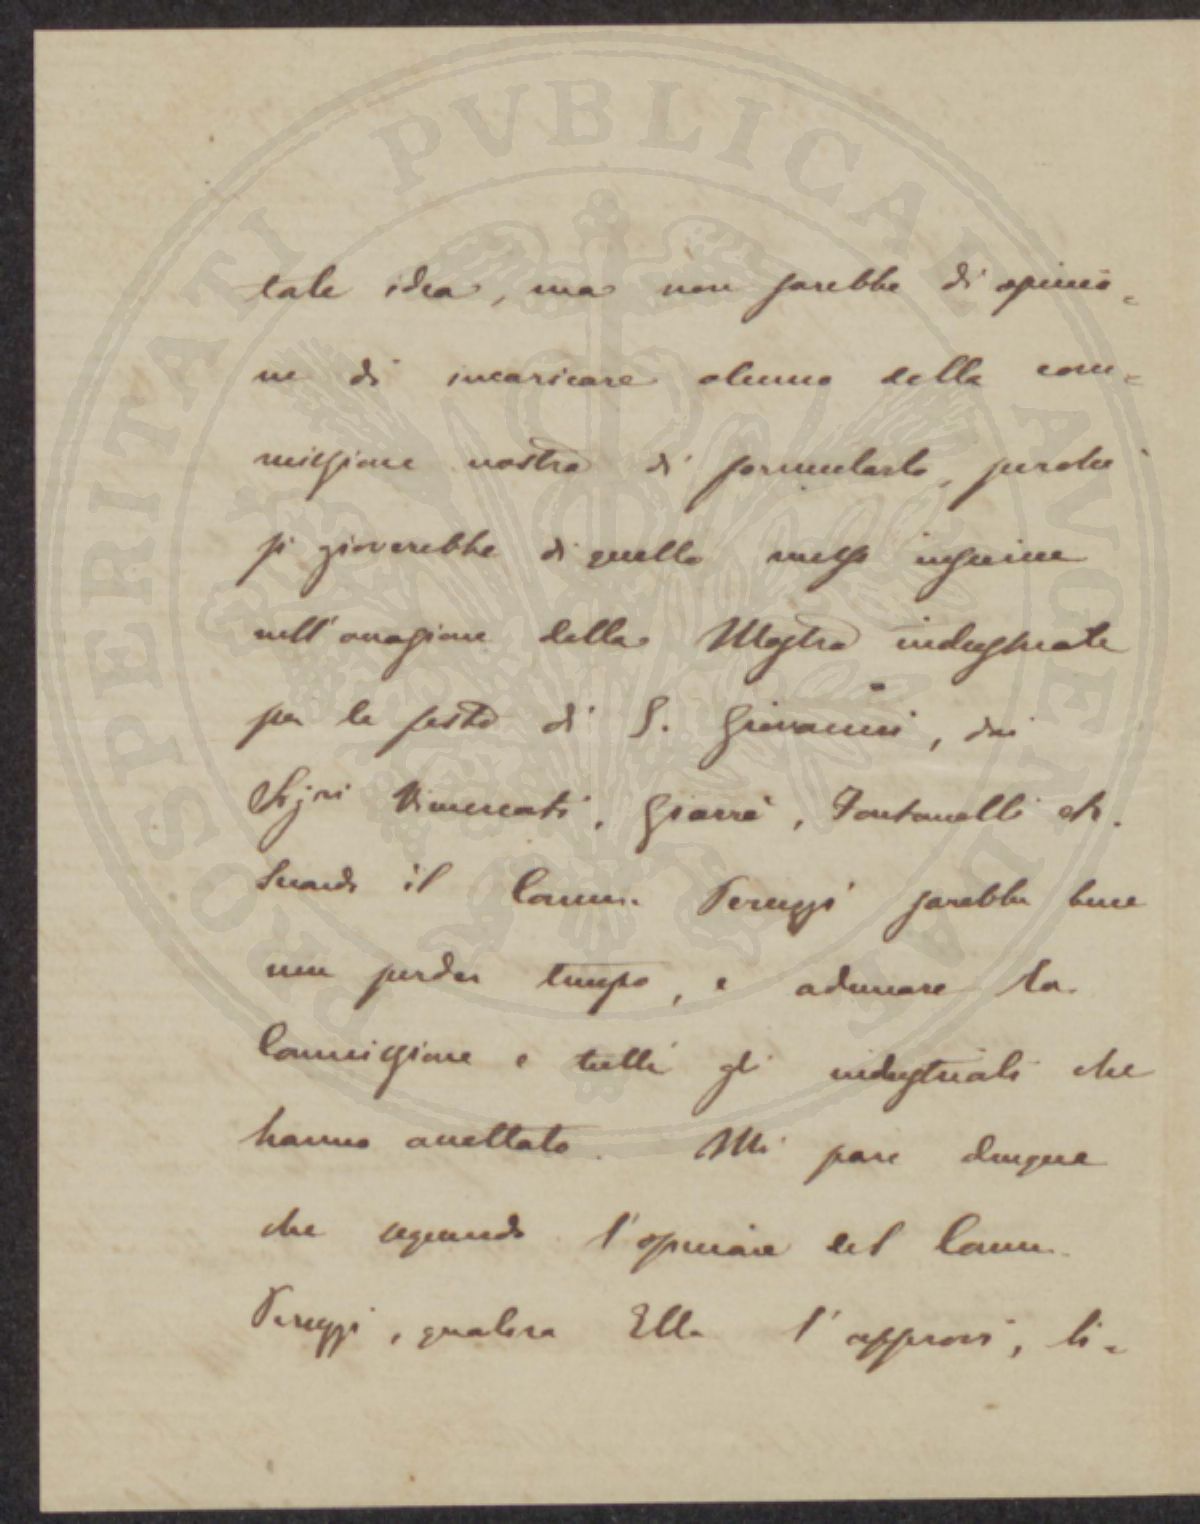 PROSPERITATI PVBLICAE AVGENDAE
tale idea, ma non sarebbe di opinio=
ne di incaricare alcuno della com=
missione nostra di formularlo, perchè
si gioverebbe di quello messo insieme
nell'occasione della Mostra industriale
per le feste di S. Giovanni, dai
Sigri Vimercati, Giarrè, Fontanelli etc.
Secondo il Comm. Peruzzi sarebbe bene
non perder tempo, e adunare la
Commissione e tutti gli industriali che
hanno accettato. Mi pare dunque
che seguendo l'opinione del Comm.
Peruzzi, qualora Ella l'approvi, li=